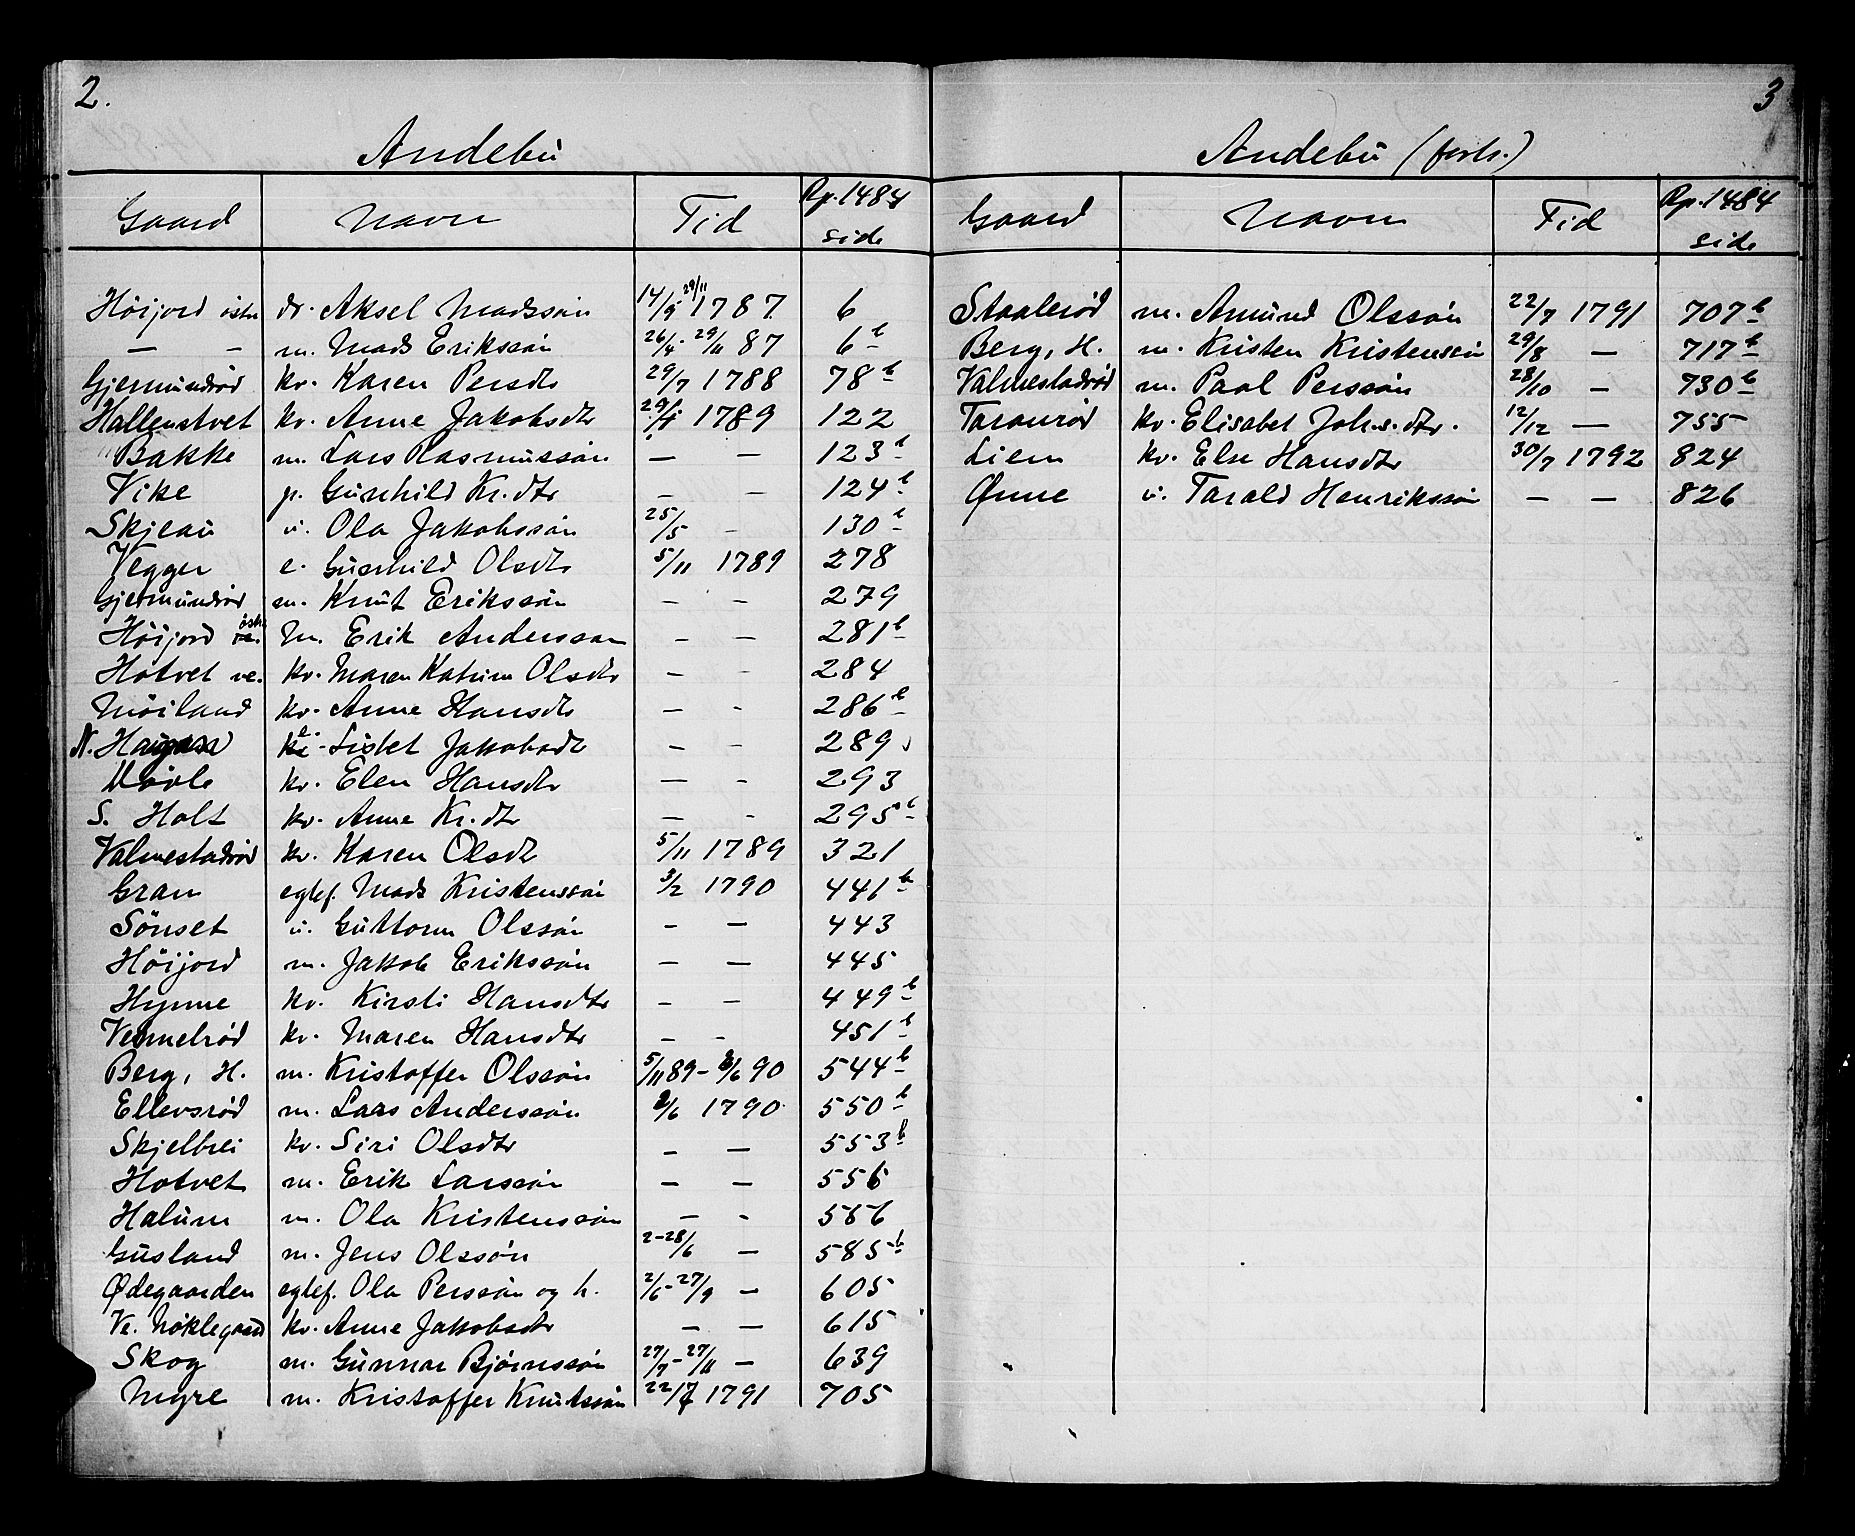 2.
Andebu
Gaard Navn Tid Rp. 1484 side
Höijord östre dr. Aksel Madssøn 14/9-29/11 1787 6
— - m. Mads Erikssøn 26/4-29/11 87 6 b
Gjermundrød kv. Karen Persdtr 29/7 1788 78 b
Hallenstvet kv. Anne Jakobsdtr 1789 122
Bakke m. Lars Rasmussøn — — 123 b
Vike p. Gunhild Kr.dtr — — 124 b
Skjeau u. Ola Jakobssøn 25/5 - 130 b
Vegger e. Gunhild Olsdtr 5/11 1789 278
Gjermundrød m. Knut Erikssøn — - 279
Höijord östre m. Erik Anderssøn - — 281 b
Hotvet ve. kv. Maren Katrine Olsdtr — - 284
Möiland kv. Anne Hansdtr — - 286 b
N. Haugan Lisbet Jakobsdtr - - 289
Møvle kv. Elen Hansdtr — - 293
S. Holt kv. Anne Kr.dtr — - 295 b
Valmestadrød kv. Karen Olsdtr 5/11 1789 321
Gran egtef. Mads Kristenssøn 3/2 1790 441 b
Sönset u. Guttorm Olssøn - — 443
Höijord m. Jakob Erikssøn — — 445
Hynne kv. Kirsti Hansdtr - — 449 b
Vennelrød kv. Maren Hansdtr — - 451 b
Berg, H. m. Kristoffer Olssøn 5/11 89 - 2/6 90 544 b
Ellevsrød m. Lars Anderssøn 2/6 1790 550 b
Skjelbrei kv. Siri Olsdtr — — 553 b
Hotvet m. Erik Larssøn — — 556
Halum m. Ola Kristenssøn — - 556
Gusland m. Jens Olssøn 2-28/6 — 585 b
Ødegaarden egtef. Ola Perssøn og h. 2/6-27/9 — 605
Ve. Nøklegaard kv. Anne Jakobsdtr — — 615
Skog m. Gunnar Bjørnssøn 27/9-27/11 — 639
Myre m. Kristoffer Knutssøn 22/7 1791 705
3
Andebu (forts.)
Gaard Navn Tid Rp. 1484 side
Staalerød m. Amund Olssøn 22/7 1791 707 b
Berg, H. m. Kristen Kristenssøn 29/8 — 717 b
Valmestadrød m. Paal Perssøn 28/10 - 730 b
Taranrød kv. Elisabet Joh.s.dtr. 12/12 — 755
Liem kv. Else Hansdtr 30/7 1792 824
Ønne u. Tarald Henrikssøn — — 826